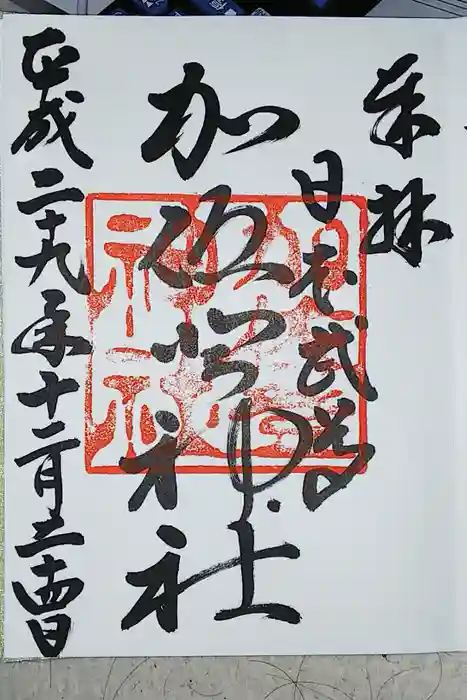 奉拝
日本武尊
加佐登神社
平成二十九年十二月二十四日